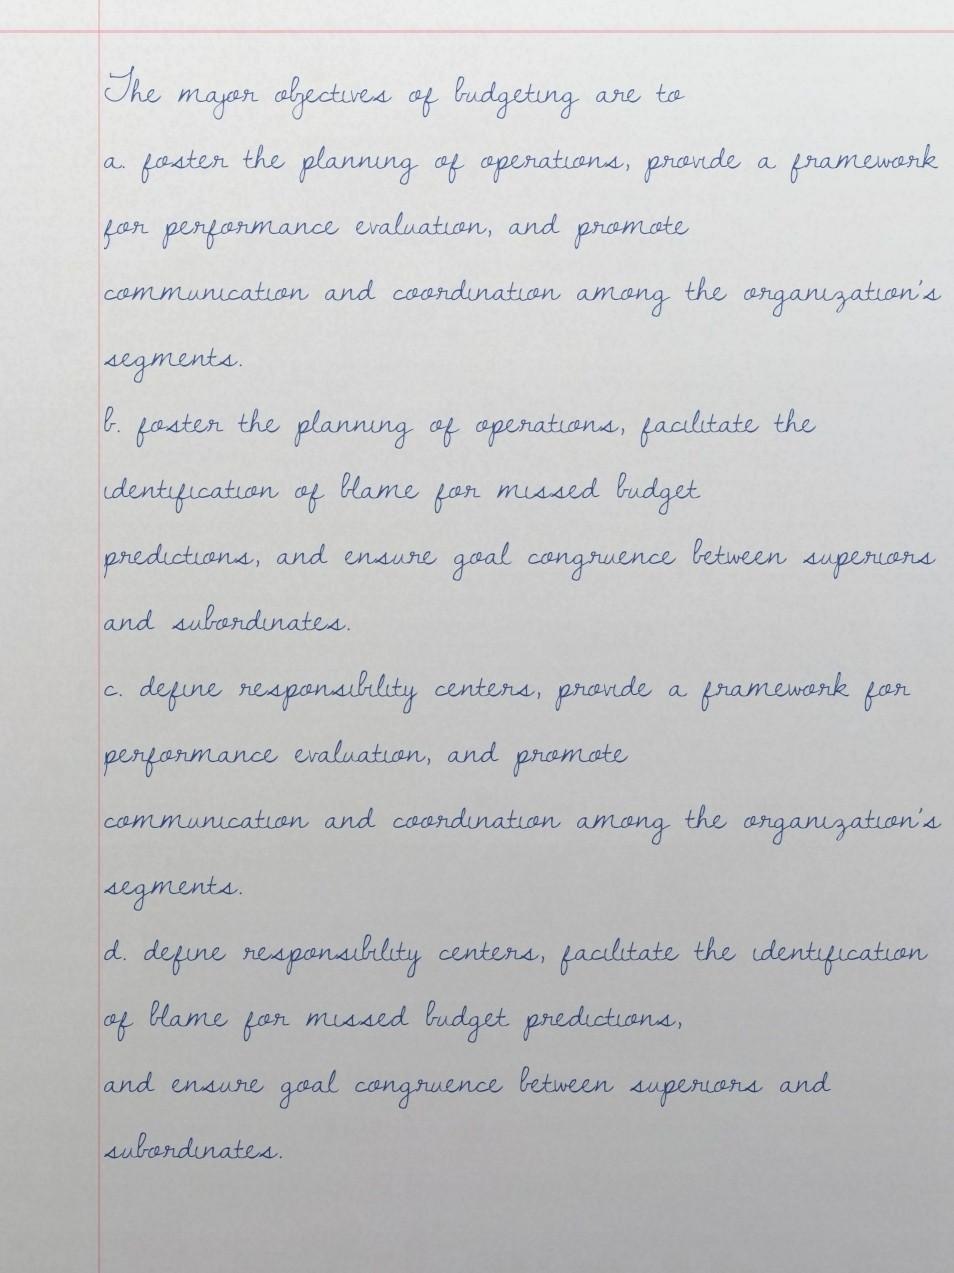 The major objectives of budgeting are to
a. foster the planning of operations, provide a framework
for performance evaluation, and promote
communication and coordination among the organization's
segments.
b. foster the planning of operations, facilitate the
identification of blame for missed budget
predictions, and ensure goal congruence between superiors
and subordinates.
c. define responsibility centers, provide a framework for
performance evaluation, and promote
communication and coordination among the organization's
segments.
d. define responsibility centers, facilitate the identification
of blame for missed budget predictions,
and ensure goal congruence between superiors and
subordinates.